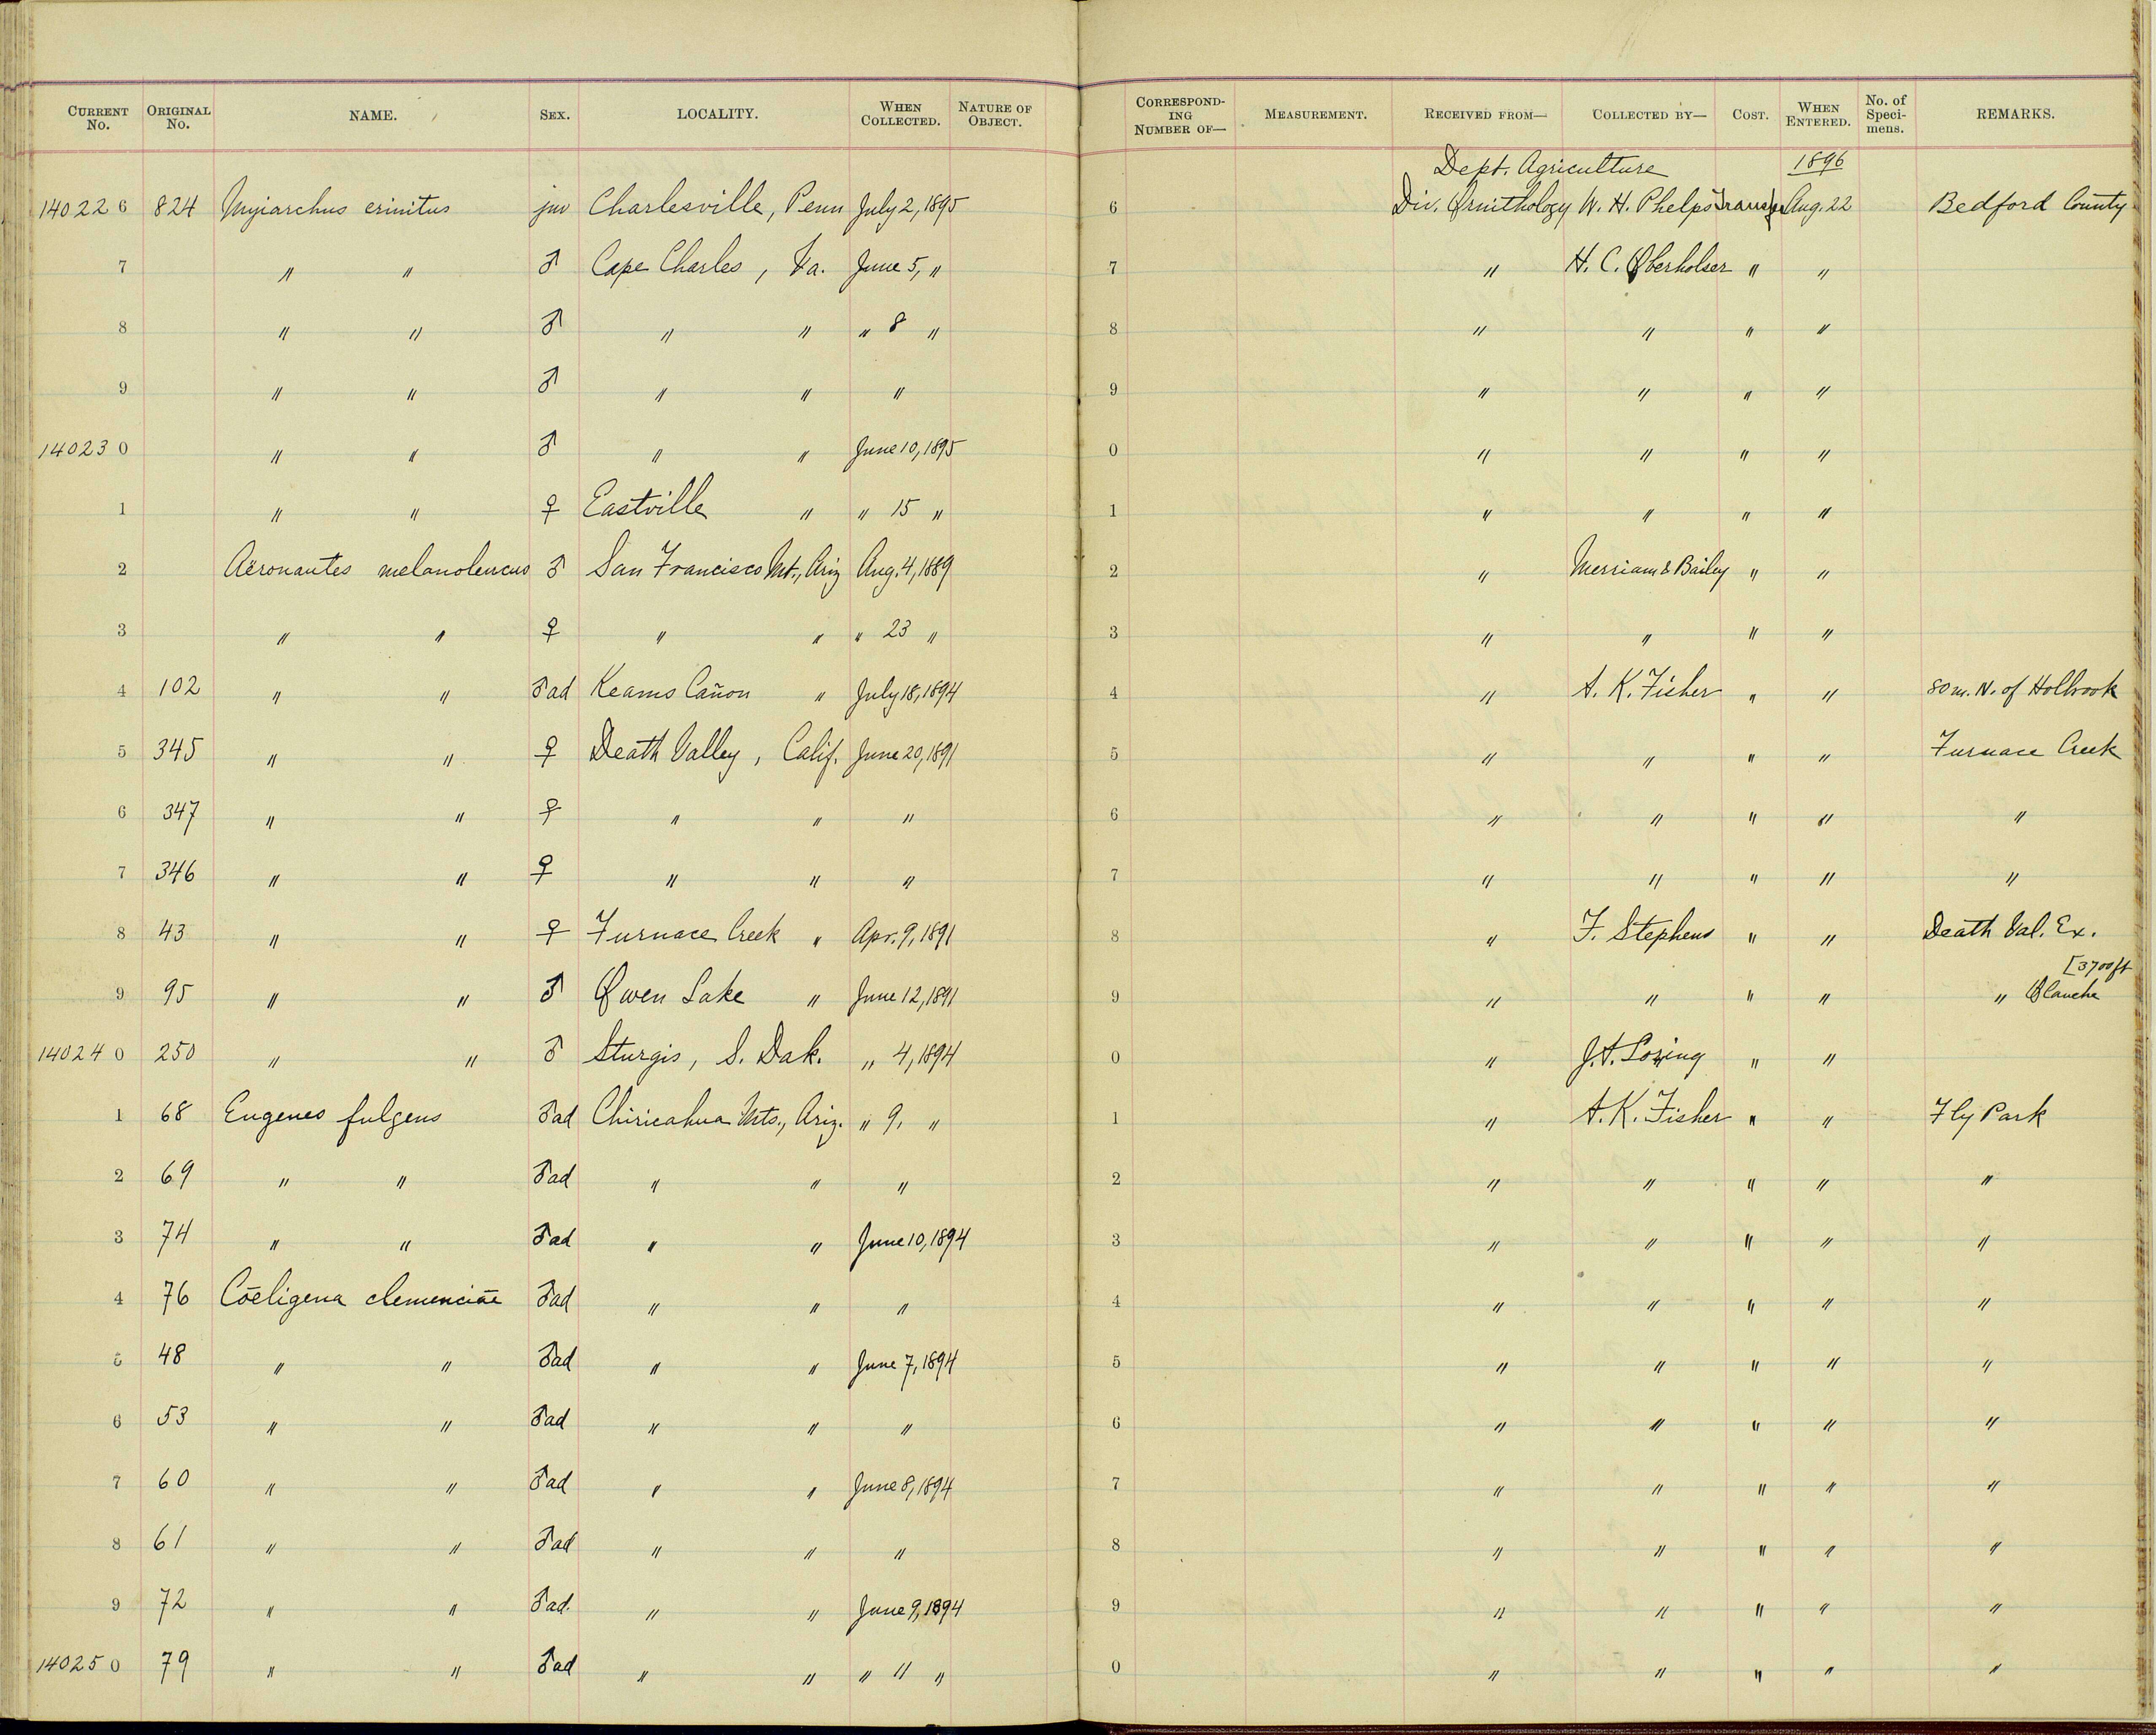 CURRENT No. ORIGINAL No. NAME. SEX. LOCALITY. WHEN COLLECTED. NATURE OF OBJECT. CORRESPONDING NUMBER OF— MEASUREMENT. RECEIVED FROM— COLLECTED BY— COST. WHEN ENTERED. No. of Specimens. REMARKS.
Dept. Agriculture 1896
140226 824 Myiarchus crinitus juv Charlesville, Penn July 2, 1895 6 Div. Ornithology W. H. Phelps Transf. Aug. 22 Bedford County
7 " " ♂ Cape Charles, Va. June 5, " 7 " H. C. Oberholser " "
8 " " ♂ " " " 8 " 8 " " " "
9 " " ♂ " " " 9 " " " "
140230 " " ♂ " " June 10, 1895 0 " " " "
1 " " ♀ Eastville " " 15 " 1 " " " "
2 Aëronautes melanoleucus ♂ San Francisco Mt., Ariz Aug. 4, 1889 2 " Merriam & Bailey " "
3 " " ♀ " " " 23 " 3 " " " "
4 102 " " ♂ad Keams Cañon " July 18, 1894 4 " A. K. Fisher " " 80 m. N. of Holbrook
5 345 " " ♀ Death Valley, Calif. June 20, 1891 5 " " " " Furnace Creek
6 347 " " ♀ " " " 6 " " " " "
7 346 " " ♀ " " " 7 " " " " "
8 43 " " ♀ Furnace Creek " Apr. 9, 1891 8 " F. Stephens " " Death Val. Ex.
[3700 ft
9 95 " " ♂ Owen Lake " June 12, 1891 9 " " " " " Olancha
140240 250 " " ♂ Sturgis, S. Dak. " 4, 1894 0 " J. A. Loring " "
1 68 Eugenes fulgens ♂ad Chiricahua Mts., Ariz. " 9, " 1 " A. K. Fisher " " Fly Park
2 69 " " ♂ad " " " 2 " " " " "
3 74 " " ♂ad " " June 10, 1894 3 " " " " "
4 76 Coeligena clemenciae ♂ad " " " 4 " " " " "
5 48 " " ♂ad " " June 7, 1894 5 " " " " "
6 53 " " ♂ad " " " 6 " " " " "
7 60 " " ♂ad " " June 8, 1894 7 " " " " "
8 61 " " ♂ad " " " 8 " " " " "
9 72 " " ♂ad. " " June 9, 1894 9 " " " " "
140250 79 " " ♂ad " " " 11 " 0 " " " " "